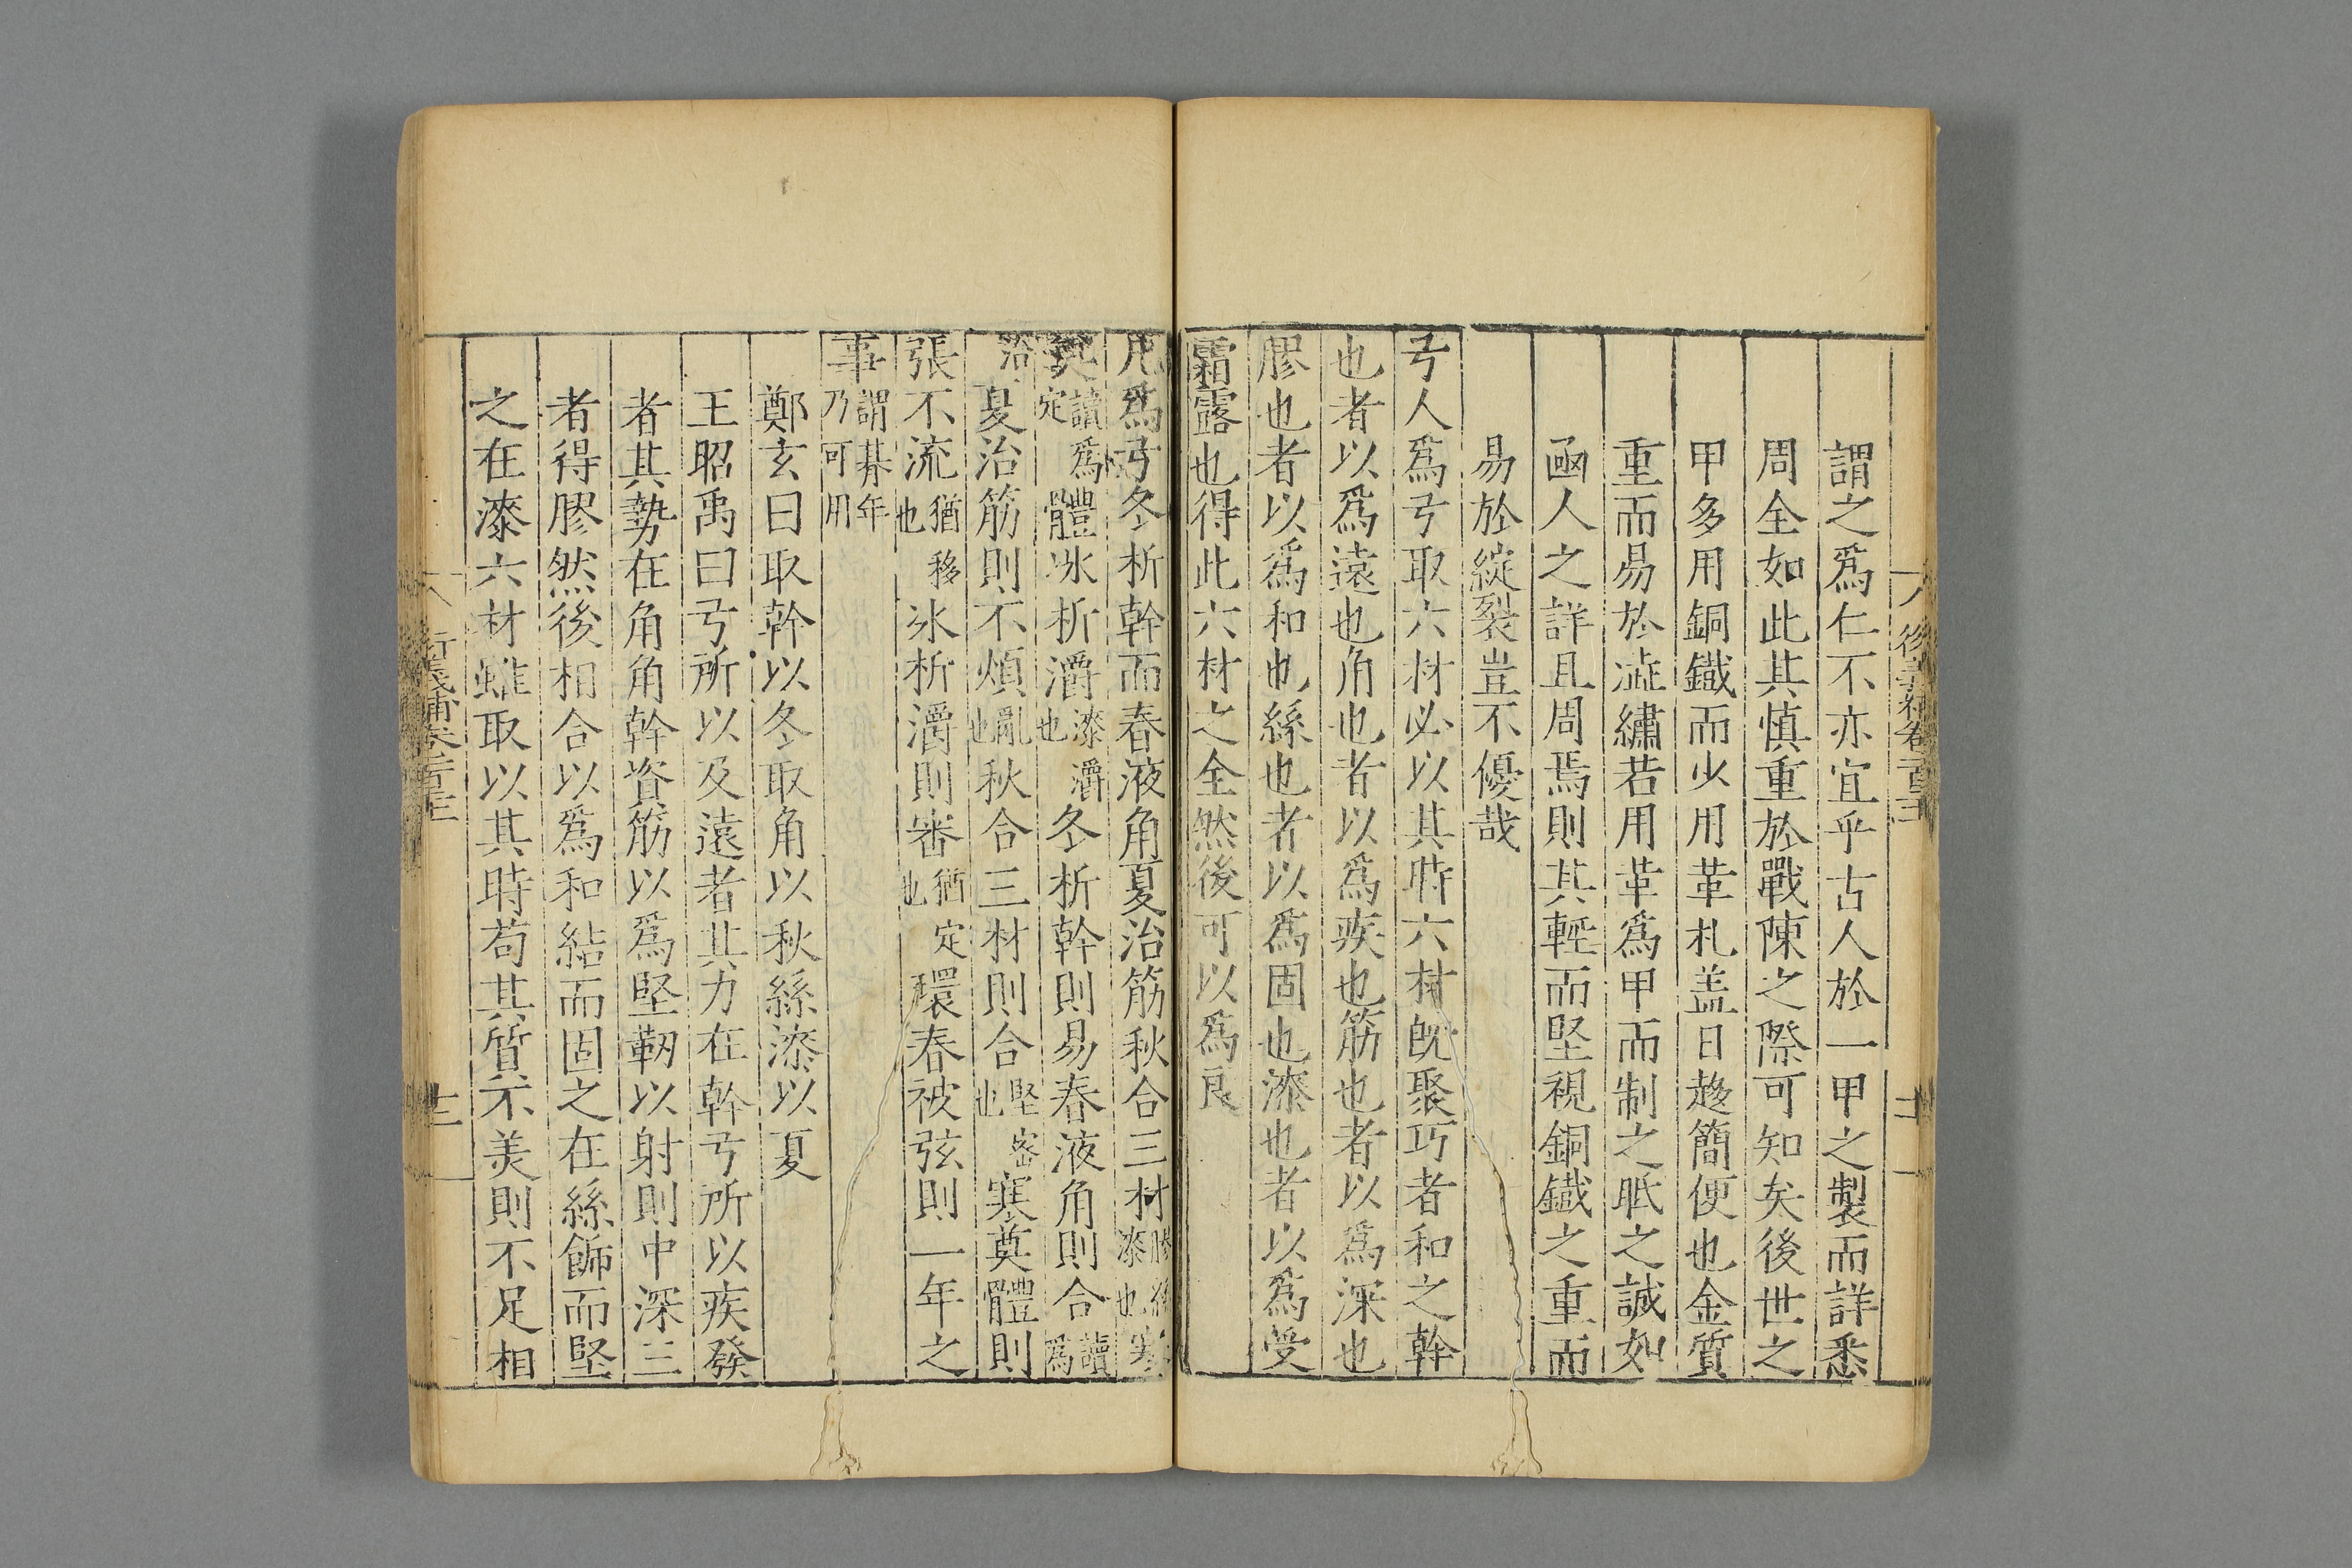 謂之爲仁不亦宜乎古人於一甲之製而詳悉
周全如此其慎重於戰陳之際可知矣後世之
甲多用銅鐵而少用革札盖日趍簡便也金質
重而易於澁繡若用革爲甲而制之眡之誠如
凾人之詳且周焉則其輕而堅視銅鐵之重而
易於綻裂豈不優哉
弓人爲弓取六材必以其時六材旣聚巧者和之幹
也者以爲遠也角也者以爲疾也筋也者以爲深也
膠也者以爲和也絲也者以爲固也漆也者以爲受
霜露也得此六材之全然後可以爲良
凡爲弓冬析幹而春液角夏治筋秋合三材膠絲漆也寒
奠讀爲定體冰析灂漆灂也冬析幹則易春液角則合讀爲
洽夏治筋則不煩亂也秋合三材則合堅密也寒奠體則
張不流猶移也冰析灂則審猶定也環春被弦則一年之
事謂朞年乃可用
鄭玄曰取幹以冬取角以秋絲漆以夏
王昭禹曰弓所以及遠者其力在幹弓所以疾發
者其勢在角角幹資筋以爲堅韌以射則中深三
者得膠然後相合以爲和結而固之在絲飾而堅
之在漆六材雖取以其時苟其質不美則不足相